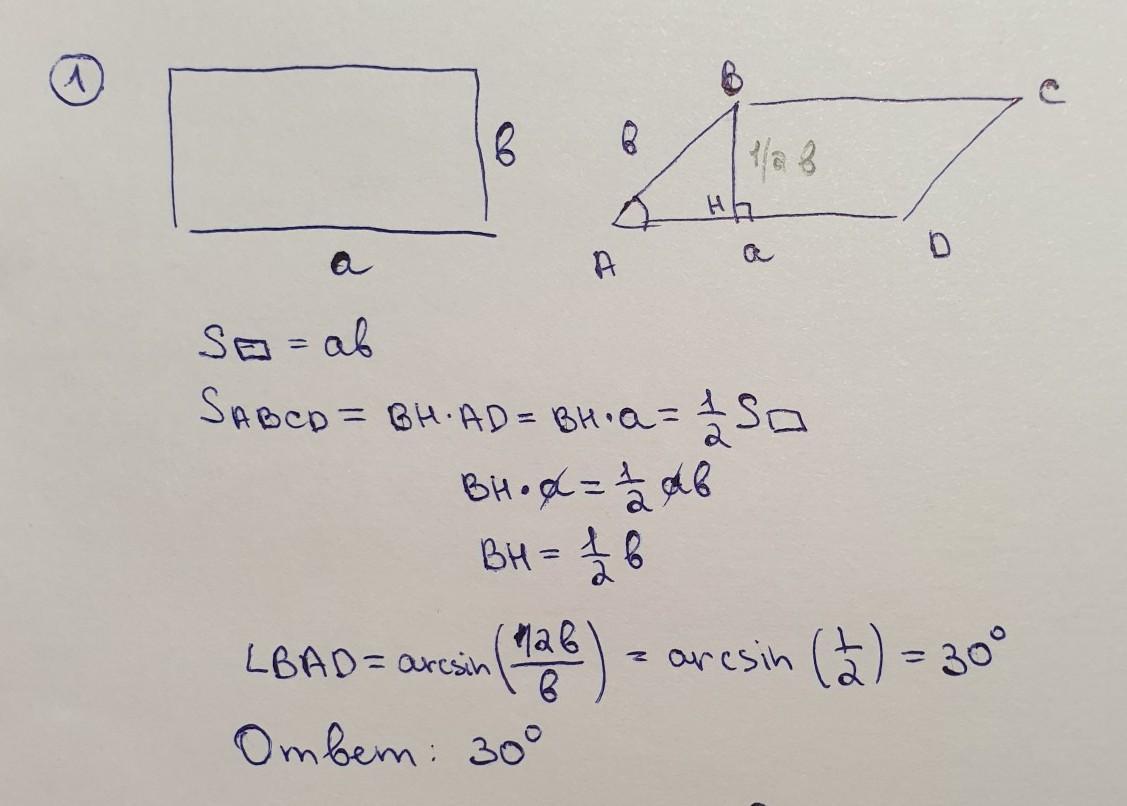 1
B
C
в
в
1/2 в
H
A
a
D
a
S▭ = ab
SABCD = BH·AD = BH·a = 1/2 S▱
BH·a = 1/2 aв
BH = 1/2 в
∠BAD = arcsin(1/2в/в) = arcsin (1/2) = 30°
Ответ: 30°